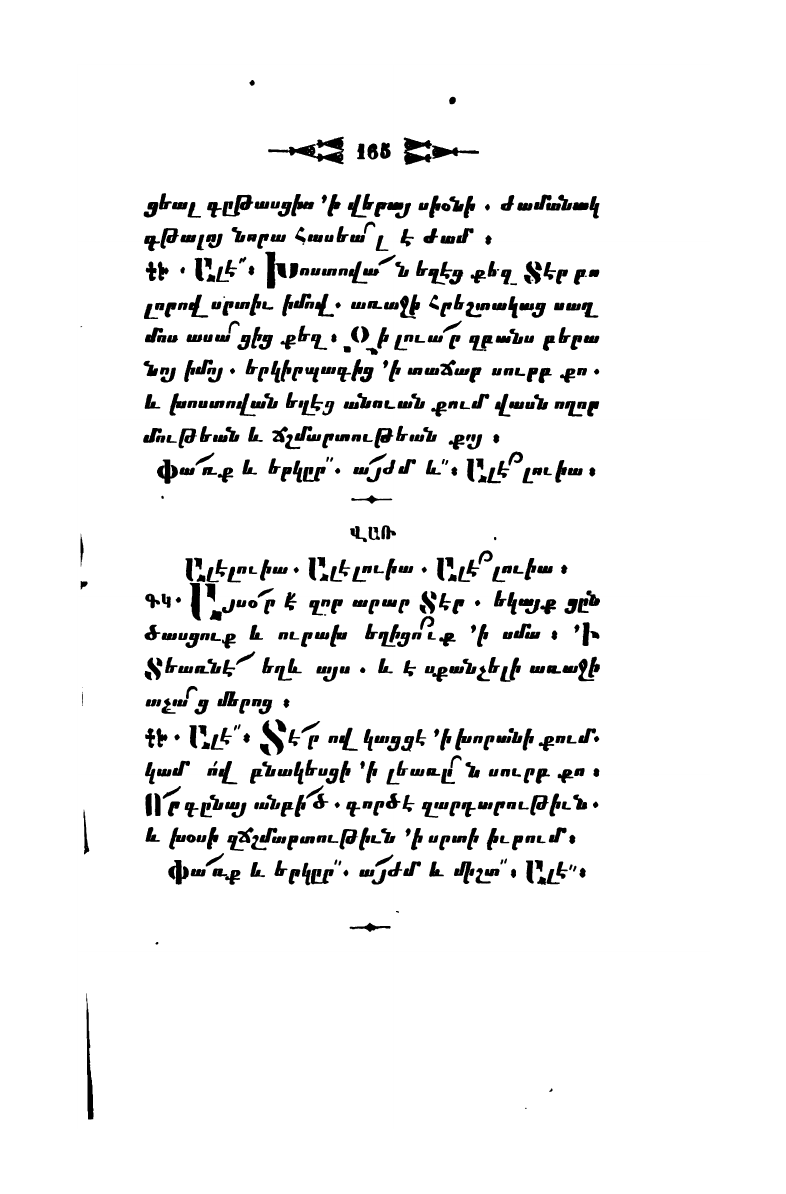 165
ցեալ գըթասցիս ՚ի վերայ սիօնի . ժամանակ
գթալոյ նորա հասեա՜լ է ժամ ։
ԷԻ . Ալէ՜՝։ Խոստովա՜ն եղէց քեզ Տէր բո
լորով սրտիւ իմով . առաջի հրեշտակաց սաղ
մոս ասա՜ցից քեզ ։ Զի լուա՜ր զբանս բերա
նոյ իմոյ . երկիրպագից ՚ի տաճար սուրբ քո .
և խոստովան եղէց անուան քում վասն ողոր
մութեան և ճշմարտութեան քոյ ։
Փա՜ռք և երկըր՝՝. ա՜յժմ և՝՝։ Ալէ՜լուիա ։
ՎԱՌ
Ալէլուիա . Ալէլուիա . Ալէ՜լուիա ։
ԳԿ . Այսօ՜ր է զոր արար Տէր . եկայք ցըն
ծասցուք և ուրախ եղիցո՜ւք ՚ի սմա ։ ՚Ի
Տեառնէ՜ եղև այս . և է սքանչելի առաջի
աչա՜ց մերոց ։
ԷԻ . Ալէ՝՝։ Տէ՜ր ով կացցէ ՚ի խորանի քում.
կամ ո՛վ բնակեսցի ՚ի լեառը՜ն սուրբ քո ։
Ո՜ր գընայ անբի՜ծ . գործէ զարդարութիւն .
և խօսի զճշմարտութիւն ՚ի սրտի իւրում ։
Փա՜ռք և երկըր՝՝. ա՜յժմ և միշտ՝՝։ Ալէ՝՝։